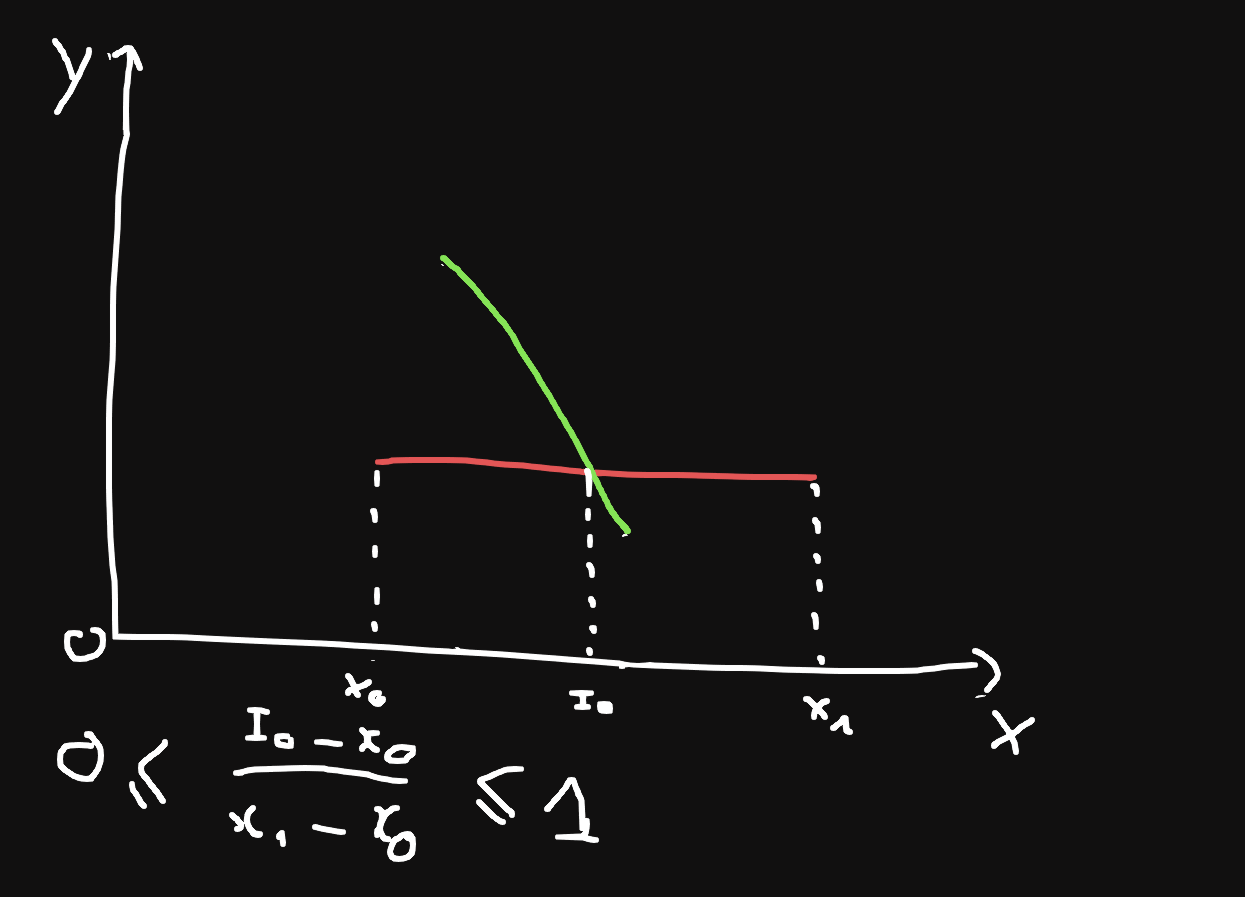 y
0
x₀ I₀ x₁
x
0 ≤ (I₀ - x₀)/(x₁ - x₀) ≤ 1